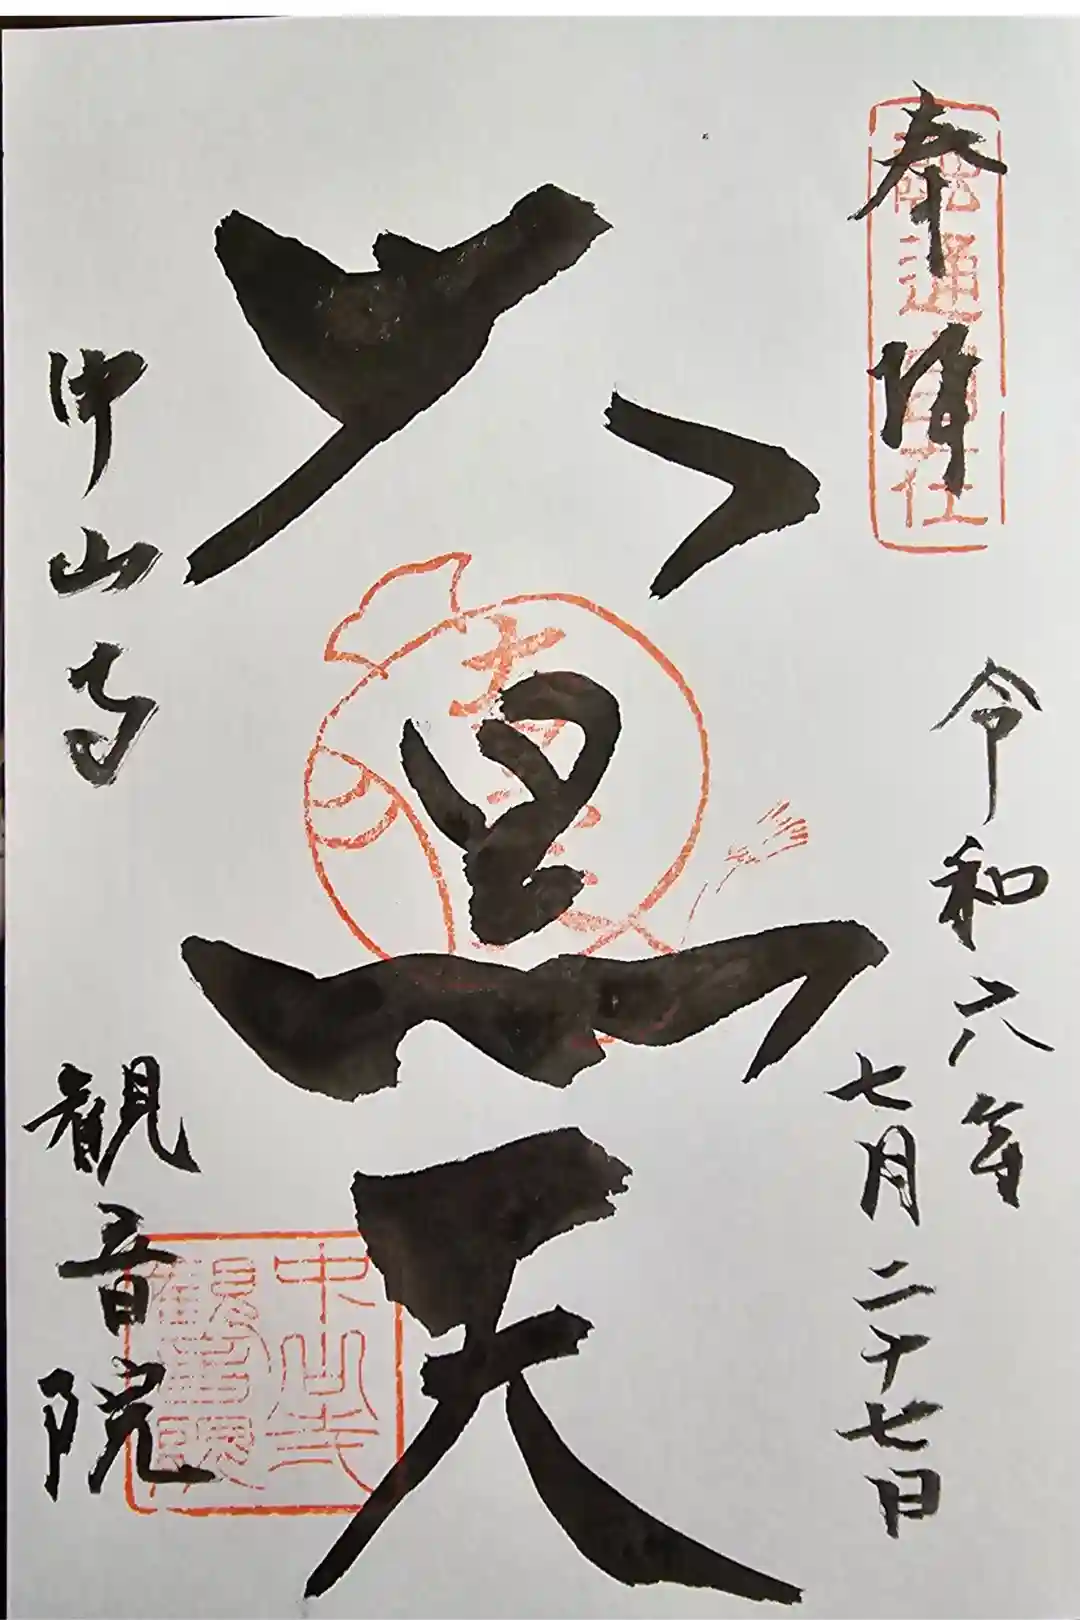 奉拝
融通自在
令和六年
七月二十七日
大黒天
中山寺 観音院
中山寺
観音院